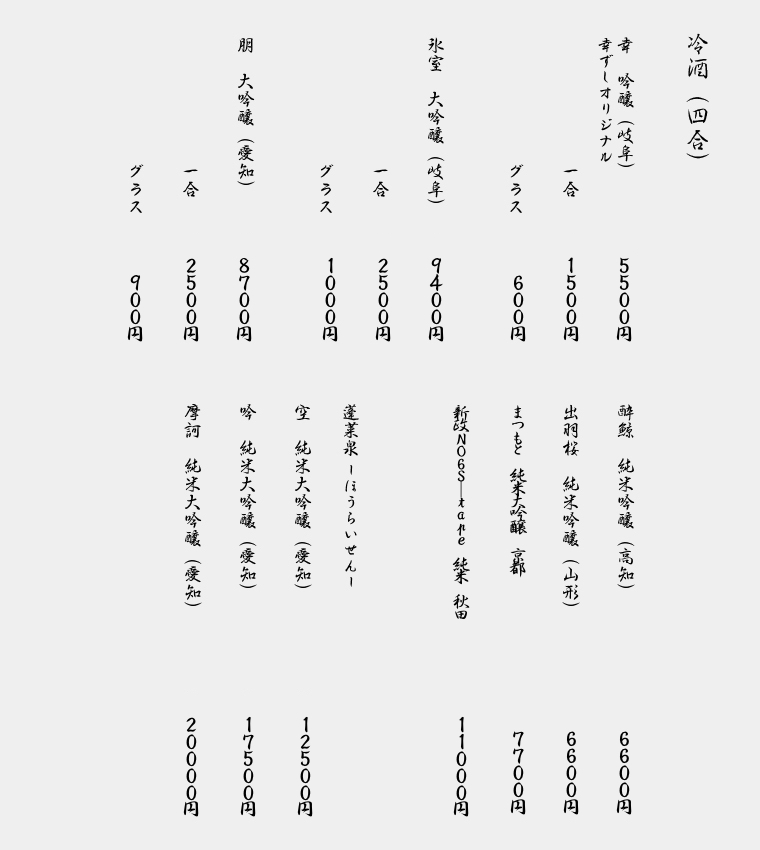 冷酒（四合）
幸　吟醸（岐阜）　5500円
幸ずしオリジナル
一合　1500円
グラス　600円
氷室　大吟醸（岐阜）　9400円
一合　2500円
グラス　1000円
朋　大吟醸（愛知）　8700円
一合　2500円
グラス　900円
酔鯨　純米吟醸（高知）　6600円
出羽桜　純米吟醸（山形）　6600円
まつもと　純米大吟醸　京都　7700円
新政NO6S—tape　純米　秋田　11000円
蓬莱泉 ーほうらいせんー
空　純米大吟醸（愛知）　12500円
吟　純米大吟醸（愛知）　17500円
摩訶　純米大吟醸（愛知）　20000円